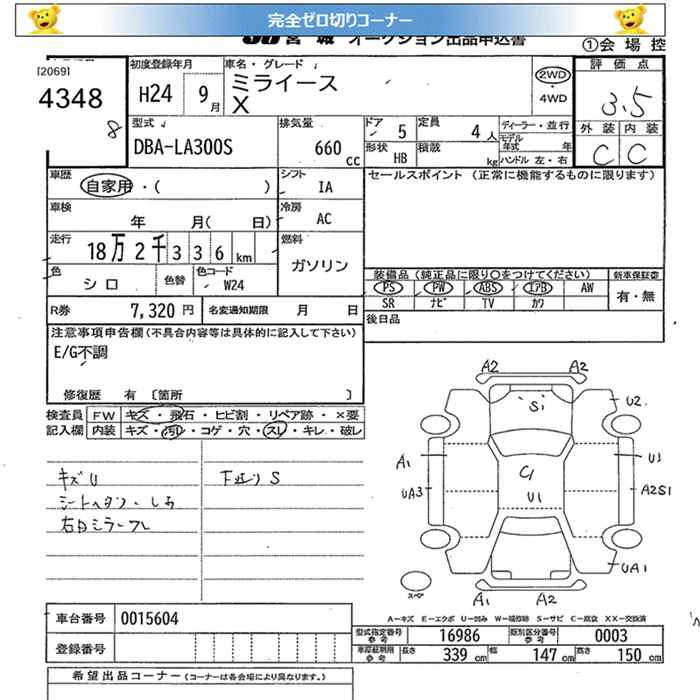 完全ゼロ切りコーナー
JU宮城 オークション出品申込書 ①会場控
[2069] 初度登録年月 車名・グレード 評価点
4348 H24 9月 ミライース X 2WD ・ 4WD 3.5
8
型式 排気量 ドア 5 定員 4人 ディーラー・並行 外装 内装
DBA-LA300S 660cc 形状 HB 積載 kg モデル年式 年 C C
ハンドル 左・右
車歴 自家用・( ) シフト IA セールスポイント(正常に機能するものに限ります)
車検 年 月( 日) 冷房 AC
走行 18万2千336km 燃料 ガソリン
色 シロ 色替 色コード W24 装備品(純正品に限り○をつけてください) 新車保証書
PS PW ABS エアB AW 有・無
SR ナビ TV カワ
R券 7,320円 名変通知期限 月 日 後日品
注意事項申告欄(不具合内容等は具体的に記入して下さい)
E/G不調
修復歴 有 〔箇所 〕
検査員 FW キズ・飛石・ヒビ割・リペア跡・×要
記入欄 内装 キズ・汚レ・コゲ・穴・スレ・キレ・破レ
キズU 下廻りS
シートヘタリ・しみ
右Dミラー
A2 A2
Si U2
A1 C1 U1
UA3 U1 A2S1
UA1
スペア A1 A2
A-キズ E-エクボ U-凹み W-補修跡 S-サビ C-腐食 XX-交換済
車台番号 0015604 型式指定番号 参考 16986 類別区分番号 参考 0003
登録番号 車庫証明用 参考 長さ 339cm 幅 147cm 高 150cm
希望出品コーナー(コーナーは各会場により異なります。)